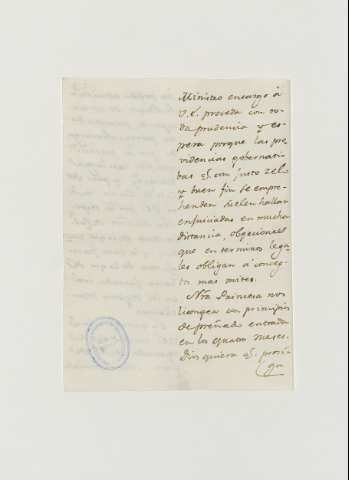 Ministro encargo á
V.E. proceda con to-
da prudencia y es-
pera porque las pro
videncias gubernati-
bas qe. con justo zelo
y buen fin se empre-
henden suelen hallar
en mucha
distancia, obgeciones
que en terminos lega
les obligan á concep-
tos mas mites.
Nra Princesa nos
licongea con principios
de preñado entrada
en los quatro meses.
Dios quiera qe. prosi-
ga